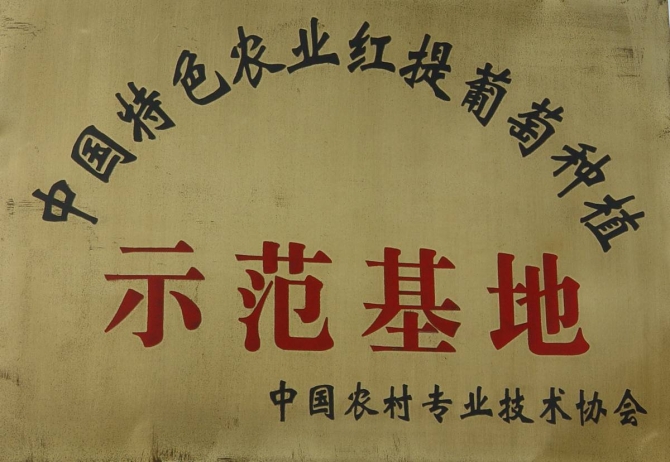 中国特色农业红提葡萄种植
示范基地
中国农村专业技术协会